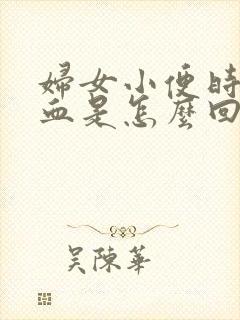 婦女小便時
血是怎麼回
吴陳華